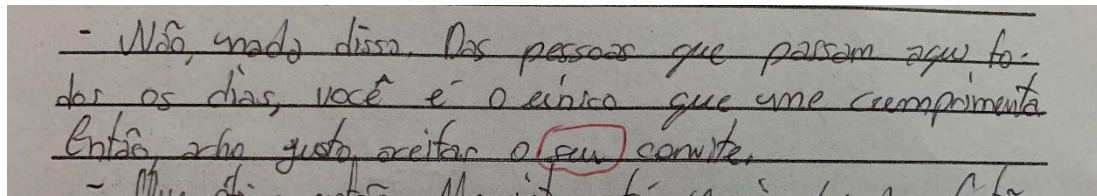 - Não, nada disso. Das pessoas que passam aqui to-
dos os dias, você é o único que me cumprimenta
Então, acho gusto, aceitar o seu convite.